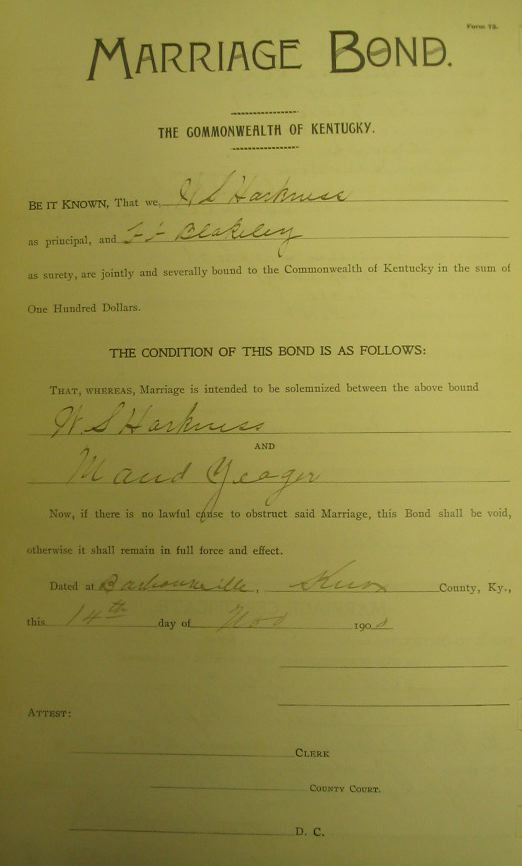 Form 73.
MARRIAGE BOND.
THE COMMONWEALTH OF KENTUCKY.
BE IT KNOWN, That we, W S Harkness
as principal, and F F Blakeley
as surety, are jointly and severally bound to the Commonwealth of Kentucky in the sum of
One Hundred Dollars.
THE CONDITION OF THIS BOND IS AS FOLLOWS:
THAT, WHEREAS, Marriage is intended to be solemnized between the above bound
W. S Harkness
AND
Maud Yeager
Now, if there is no lawful cause to obstruct said Marriage, this Bond shall be void,
otherwise it shall remain in full force and effect.
Dated at Barbourville, Knox County, Ky.,
this 14th day of Nov 190
ATTEST:
CLERK
COUNTY COURT.
D. C.